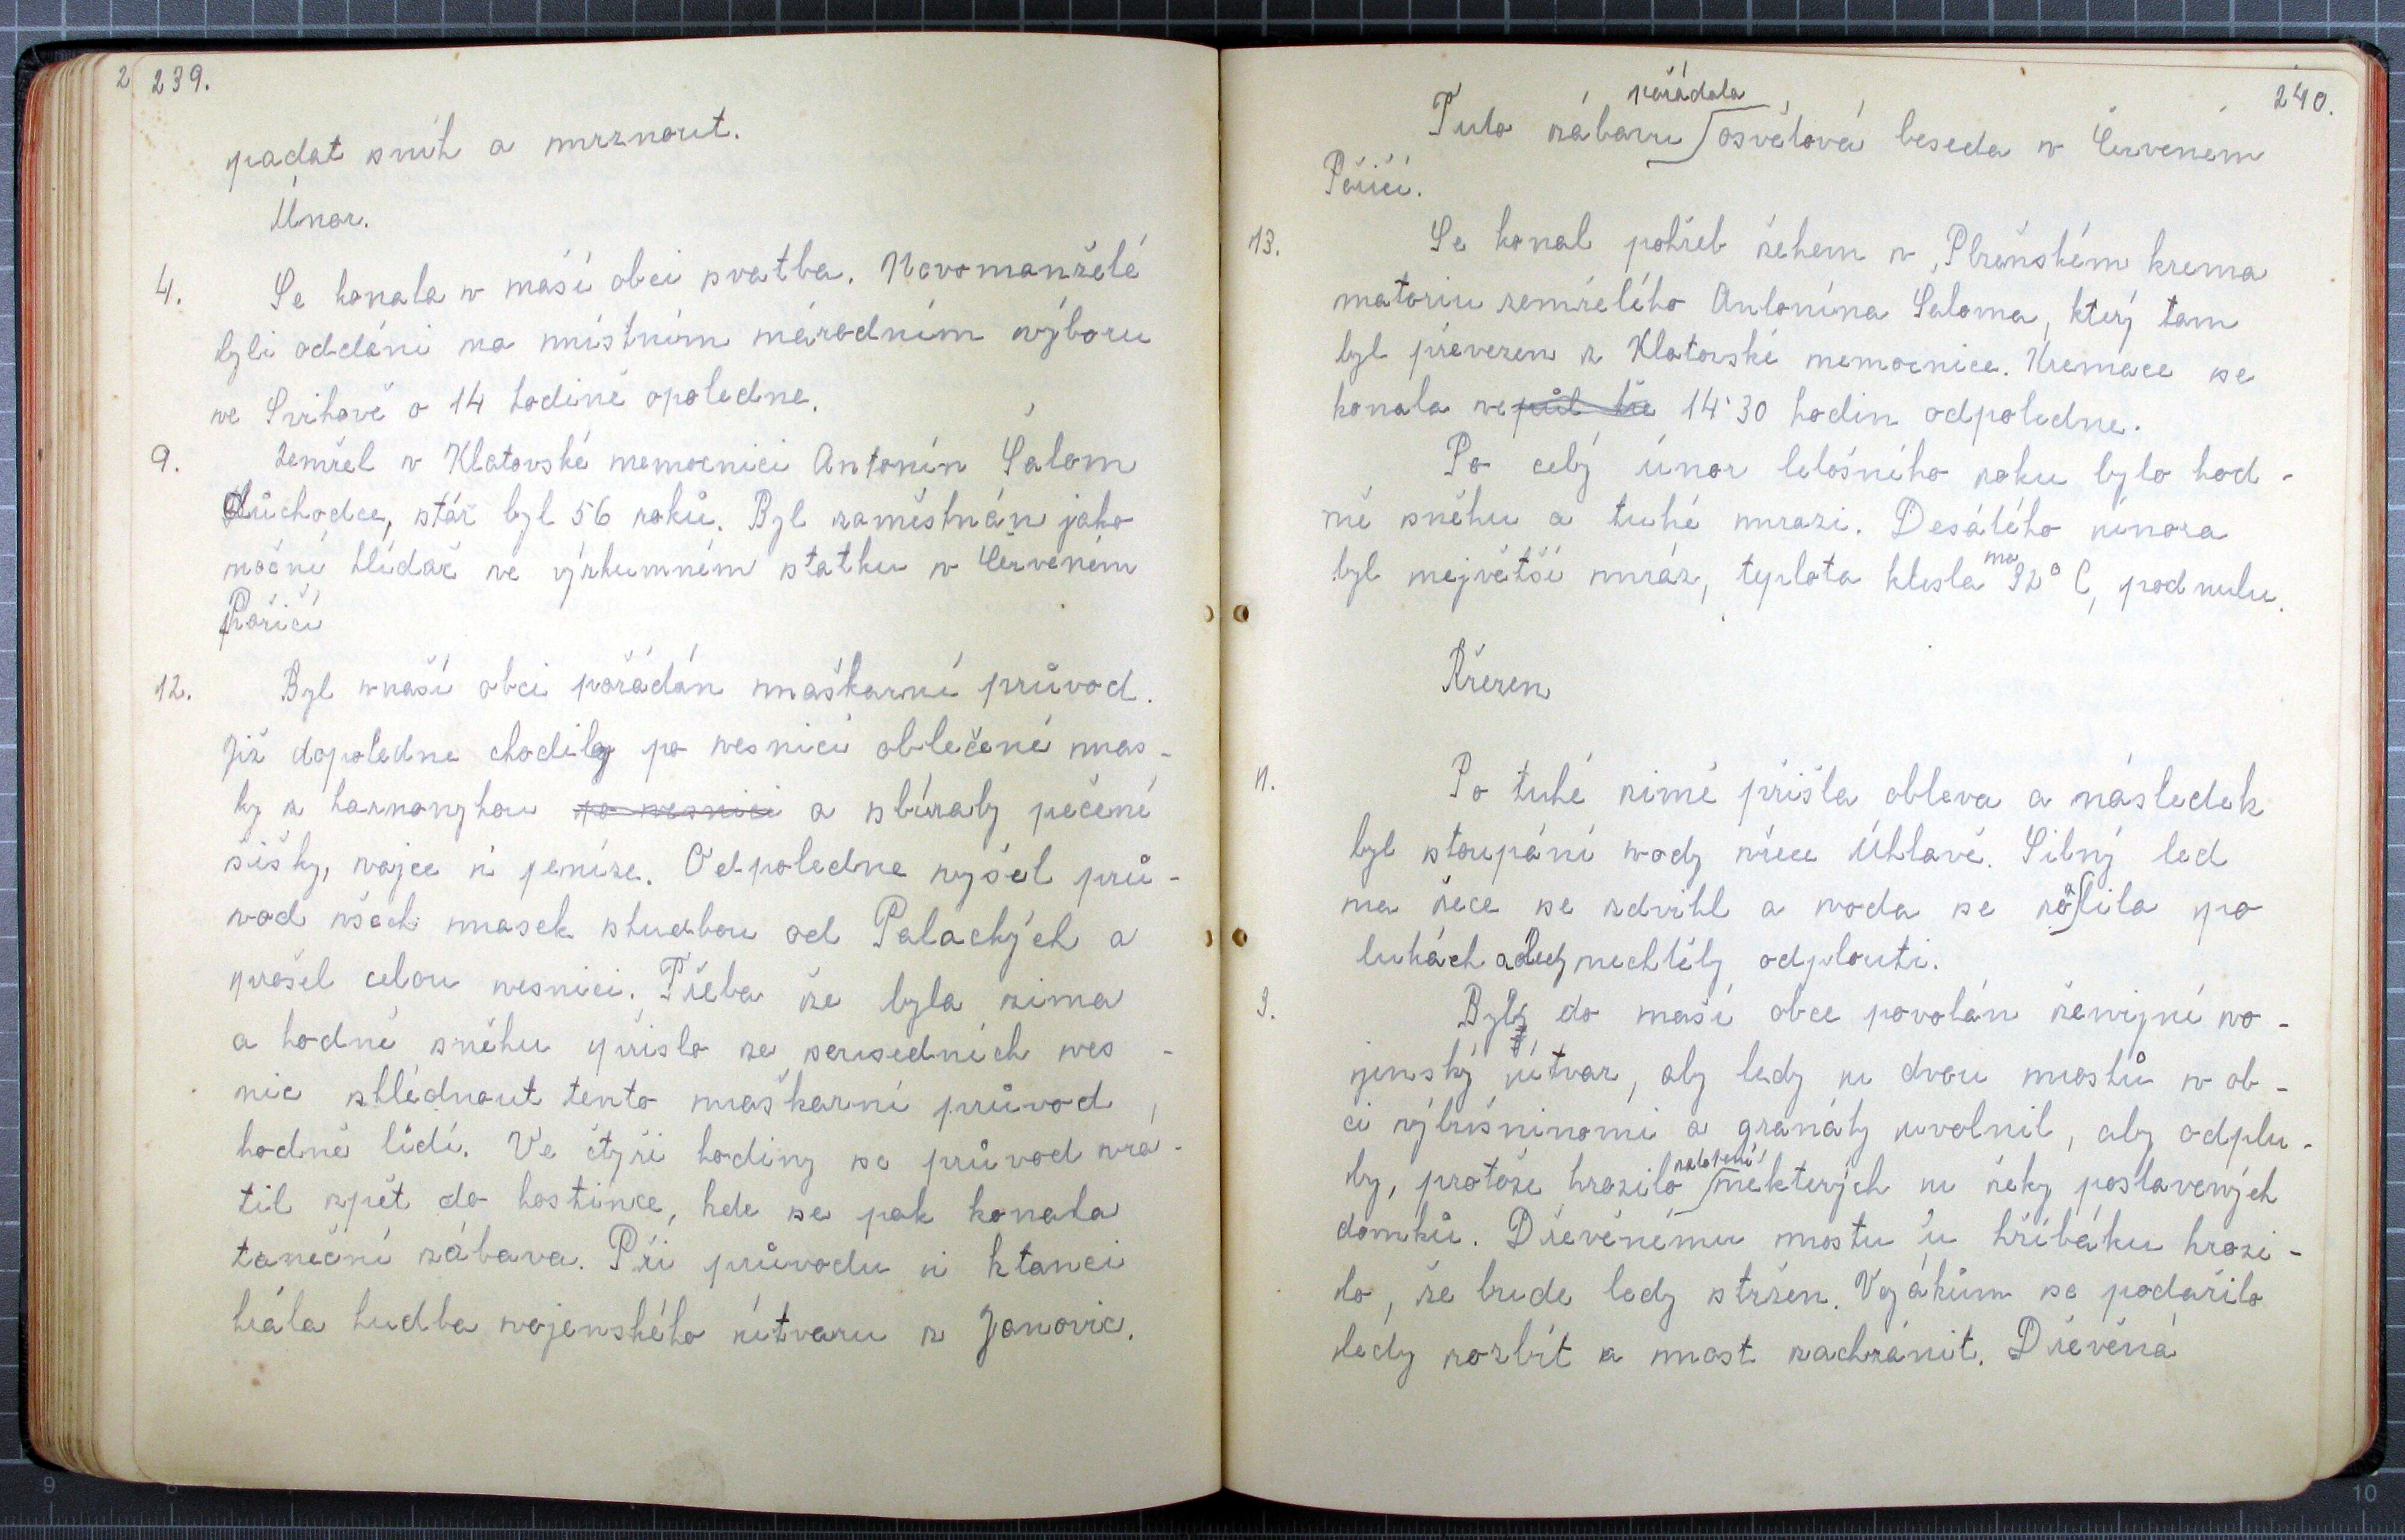 2 239.
padat sníh a mrznout.
Únor.
4. Se konala v naší obci svatba. Novomanželé
byli oddáni na místním národním výboru
ve Švihově o 14 hodině opoledne.
9. Zemřel v Klatovské nemocnici Antonín Šalom
důchodce, stár byl 56 roků. Byl zaměstnán jako
noční hlídač ve výzkumném statku v Červeném
Poříčí
12. Byl vnaší obci pořádán maškarní průvod.
Již dopoledne chodily po vesnici oblečené mas-
ky z harmonykou po vesnici a sbíraly pečené
šišky, vajce i peníze. Odpoledne vyšel prů-
vod všech masek shudbou od Palackých a
prošel celou vesnici. Třeba že byla zima
a hodně sněhu přišlo ze sousedních ves-
nic shlédnout tento maškarní průvod,
hodně lidí. Ve čtyři hodiny se průvod vrá-
til zpět do hostince, kde se pak konala
taneční zábava. Při průvodu i ktanci
hrála hudba vojenského útvaru z Janovic.
240.
pořádala
Tuto zábavu osvětová beseda v Červeném
Poříčí.
13. Se konal pohřeb žehem v Plzeňském krema
matoriu zemřelého Antonína Šaloma, který tam
byl převezen z Klatovské nemocnice. Kremace se
konala ve půl tře 14˙30 hodin odpoledne.
Po celý únor letošního roku bylo hod-
ně sněhu a tuhé mrazi. Desátého února
na
byl největší mráz, teplota klesla 32° C, pod nulu.
Březen
1. Po tuhé zimě přišla obleva a následek
byl stoupání vody vřece Úhlavě. Silný led
na řece se zdvihl a voda se rozlila po
lukách a ledy nechtěly odplouti.
3. Byl do naší obce povolán ženijní vo-
jenský útvar, aby ledy u dvou mostů v ob-
ci výbušninami a granáty uvolnil, aby odplu-
zatopení
ly, protože hrozilo některých u řeky postavených
domků. Dřevěnému mostu u hříbáku hrozi-
lo, že bude ledy stržen. Vojákům se podařilo
ledy rozbít a most zachránit. Dřevěná